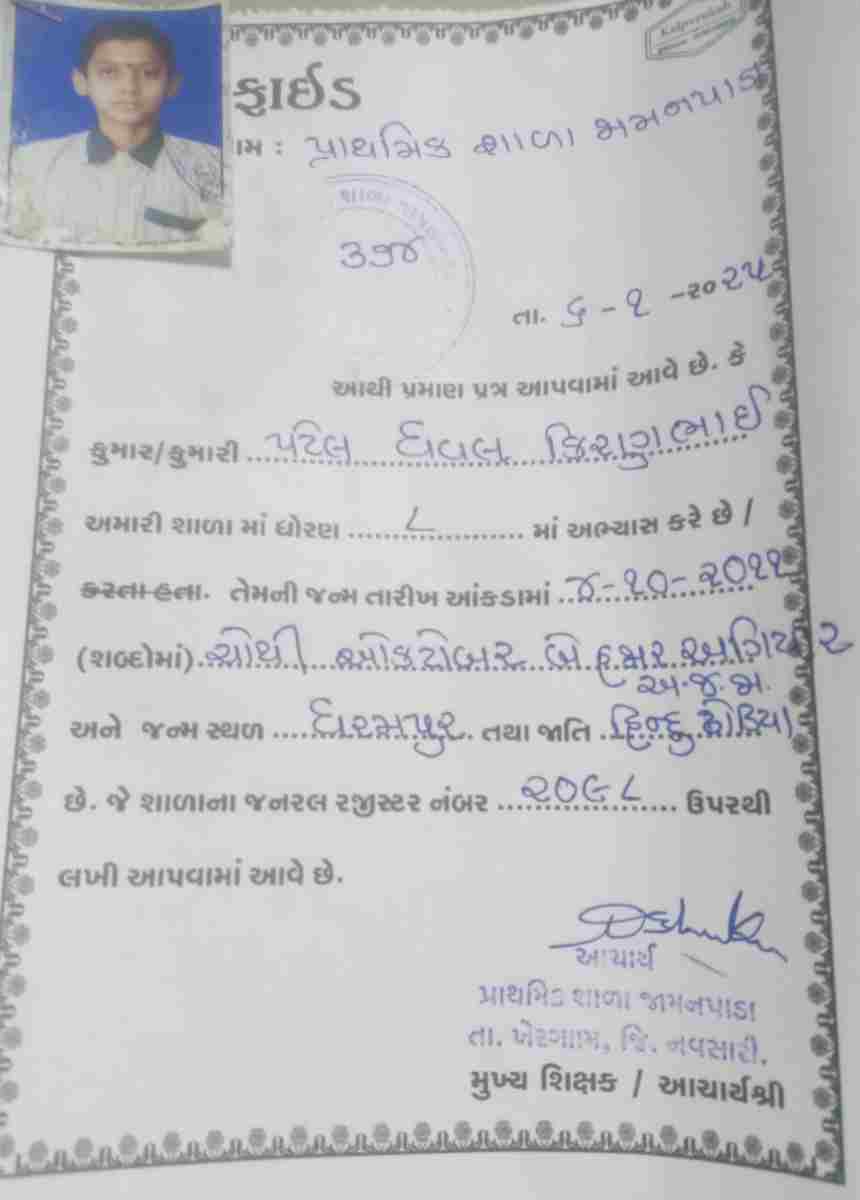 Kalpvruksh
ફાઈડ
ામ : પ્રાથમિક શાળા જામનપાડા
૩૭૪
તા. ૬-૧ -૨૦૨૫
આથી પ્રમાણ પત્ર આપવામાં આવે છે. કે
કુમાર/કુમારી પટેલ ધવલ કિરાગુભાઈ
અમારી શાળા માં ધોરણ ૮ માં અભ્યાસ કરે છે /
કરતા હતા. તેમની જન્મ તારીખ આંકડામાં ૪-૧૦-૨૦૧૧
(શબ્દોમાં) ચોથી ઓકટોબર બે હજાર અગિયાર
અ.જ.જા.
અને જન્મ સ્થળ ધરમપુર તથા જાતિ હિન્દુ ઢોડિયા
છે. જે શાળાના જનરલ રજીસ્ટર નંબર ૨૦૯૮ ઉપરથી
લખી આપવામાં આવે છે.
આચાર્ય
પ્રાથમિક શાળા જામનપાડા
તા. ખેરગામ, જિ. નવસારી.
મુખ્ય શિક્ષક / આચાર્યશ્રી